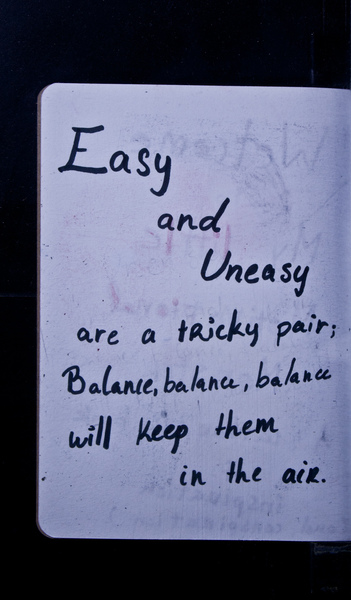 Easy
and
Uneasy
are a tricky pair;
Balance, balance, balance
will keep them
in the air.